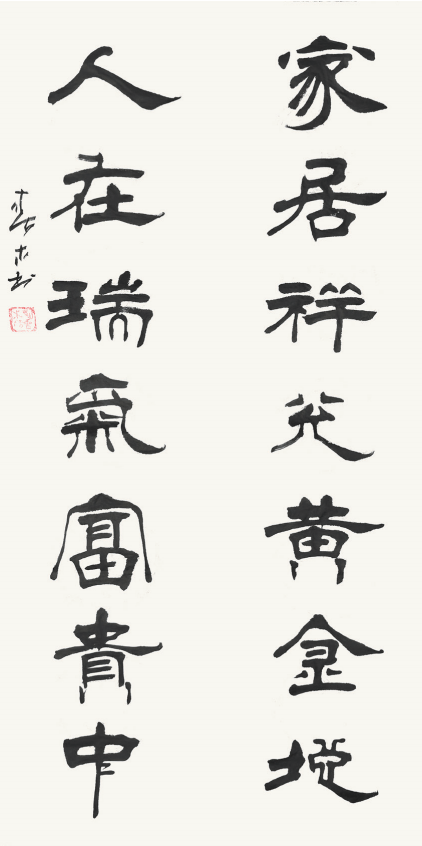 家居祥光黄金地
人在瑞氣富貴中